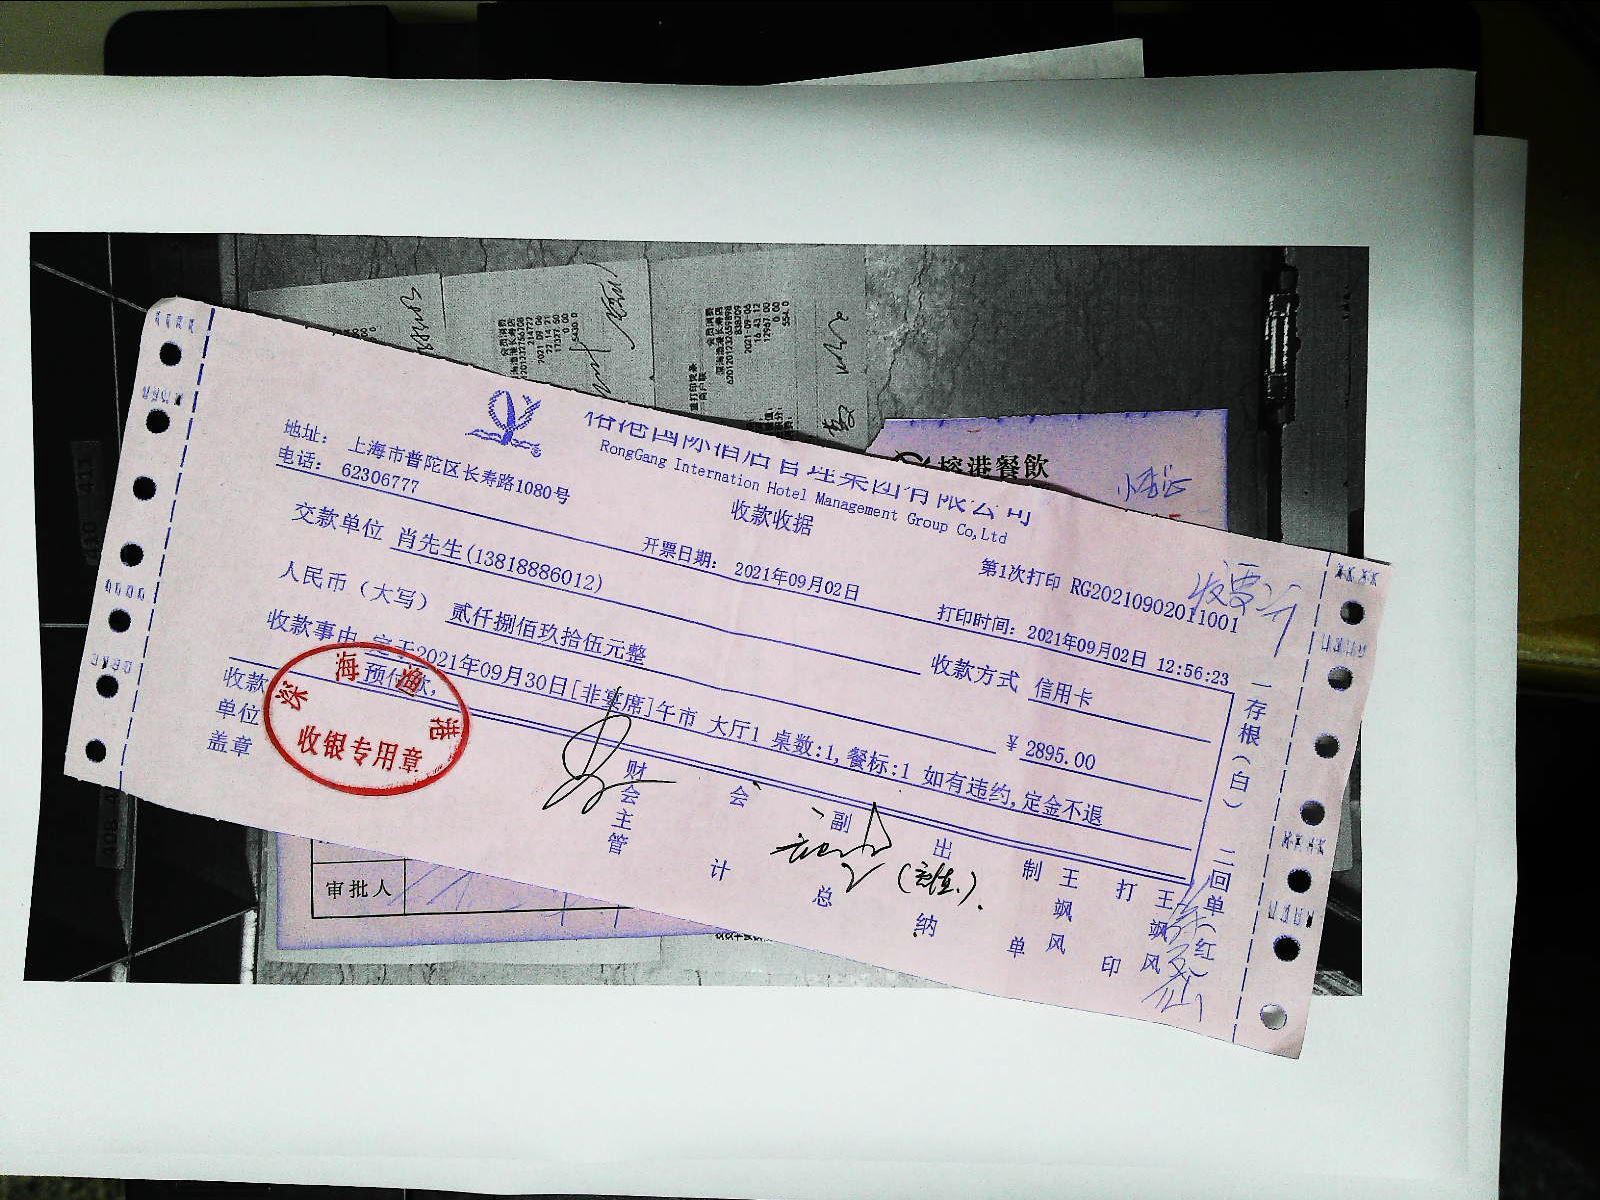 榕港餐飲
国际酒店管理集团有限公司
RongGang Internation Hotel Management Group Co,Ltd
收款收据
地址： 上海市普陀区长寿路1080号
电话： 62306777
开票日期： 2021年09月02日
第1次打印 RG20210902011001
打印时间：2021年09月02日 12:56:23
交款单位 肖先生(13818886012)
收款方式 信用卡
人民币（大写） 贰仟捌佰玖拾伍元整
¥ 2895.00
收款事由 定于2021年09月30日[非宴席]午市 大厅1 桌数:1,餐标:1 如有违约,定金不退
预付款,
收款单位盖章
深海渔港
收银专用章
财会主管
会计
副总
出纳
制单
王飒风
打印
王飒风
一存根(白) 二回单(红)
审批人
会员消费
深海渔港长寿店
2021-09-06
12967.00
0.00
554.0